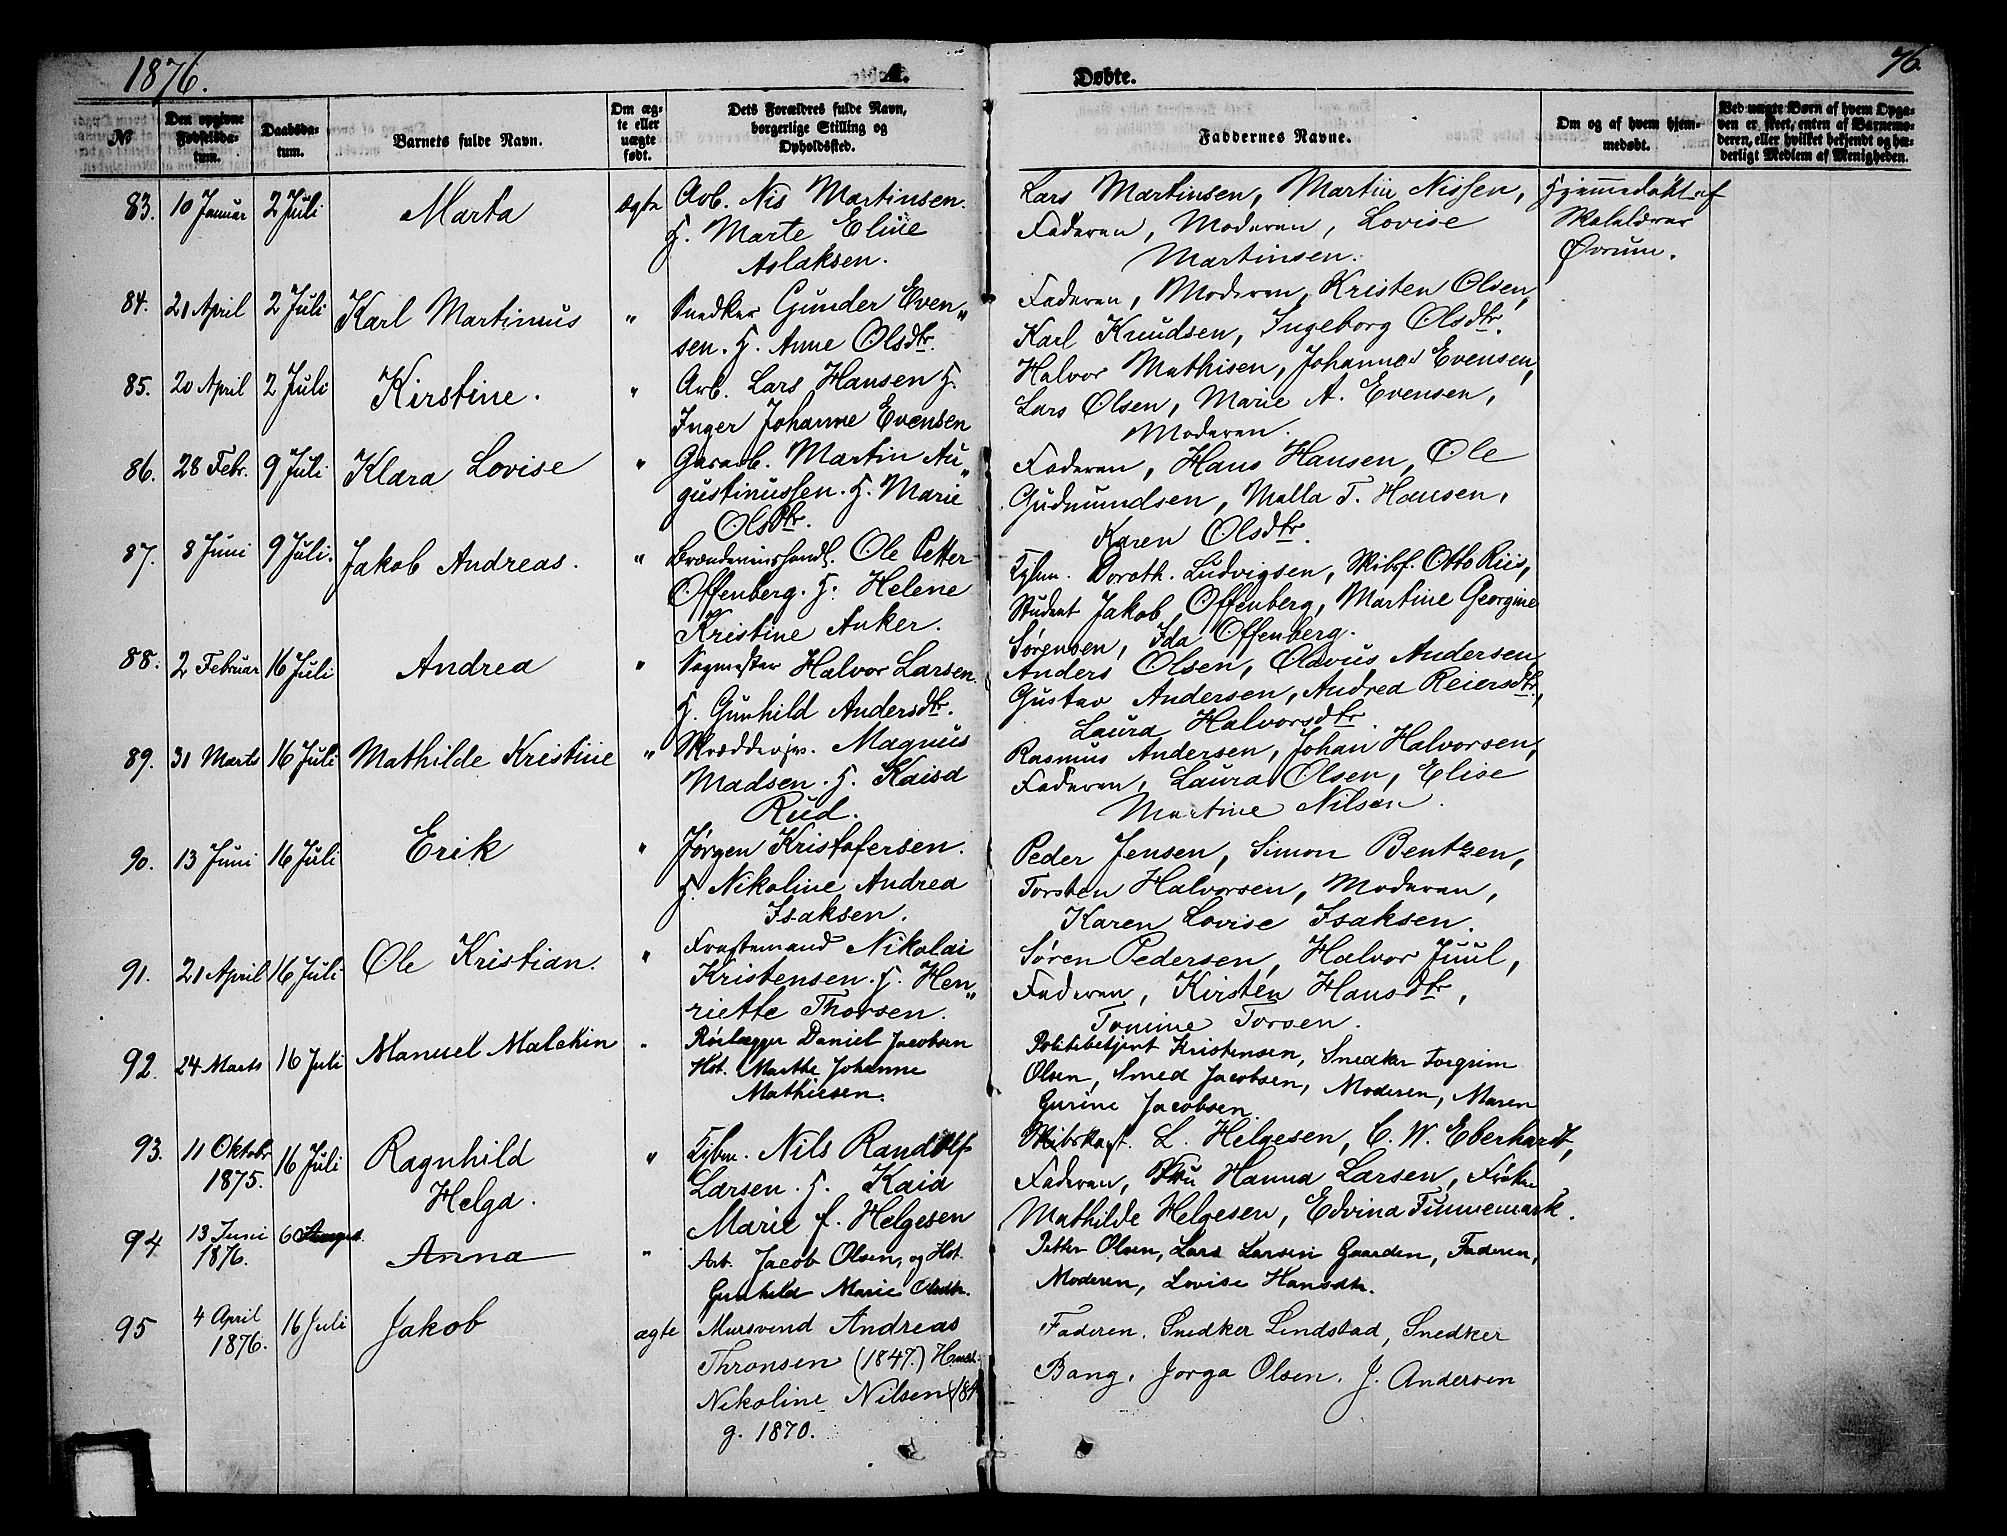 1876.
A.
Døbte.
76
№
Den opgivne Fødselsda-tum.
Daabsda-tum.
Barnets fulde Navn.
Om æg-te eller uægte født.
Dets Forældres fulde Navn, borgerlige Stilling og Opholdsted.
Faddernes Navne.
Om og af hvem hjem-medøbt.
Ved uægte Børn af hvem Opga-ven er skeet, enten af Barnemo-deren, eller hvilket bekjendt og hæ-derligt Medlem af Menigheden.
83. 10 Januar 2 Juli Marta ægte Arb. Nis Martinsen.
H. Marte Eline
Aslaksen.
Lars Martinsen, Martin Nissen,
Faderen, Moderen, Lovise
Martinsen.
Hjemmedøbt af
Skolelærer
Øvrum.
84. 21 April 2 Juli Karl Martinius " Snedker Gunder Even„
sen. H. Anne Olsdtr.
Faderen, Moderen, Kristen Olsen,
Karl Knudsen, Ingeborg Olsdtr.
85. 20 April 2 Juli Kirstine. " Arb. Lars Hansen H.
Inger Johanne Evensen
Halvor Mathisen, Johannes Evensen,
Lars Olsen, Marie A. Evensen,
Moderen.
86. 28 Febr. 9 Juli Klara Lovise " Gararb. Martin Au„
gustinussen. H. Marie
Olsdtr.
Faderen, Hans Hansen, Ole
Gudmundsen, Malla T. Hansen,
Karen Olsdtr.
87. 8 Juni 9 Juli. Jakob Andreas. " Brændevinshandl. Ole Petter
Offenberg. H. Helene
Kristine Anker.
Kjbm. Doroth. Ludvigsen, Skibsf. Otto Riis,
Student Jakob Offenberg, Martine Georgine
Sørensen, Ida Offenberg.
88. 2 Februar 16 Juli Andrea " Sagmester Halvor Larsen.
H. Gunhild Andersdtr.
Anders Olsen, Olavus Andersen,
Gustav Andersen, Andrea Reiersdtr,
Laura Halvorsdtr.
89. 31 Marts 16 Juli Mathilde Kristine " Skræddersv. Magnus
Madsen. H. Kaisa
Rud.
Rasmus Andersen, Johan Halvorsen,
Faderen, Laura Olsen, Elise
Martine Nilsen.
90. 13 Juni 16 Juli Erik " Jørgen Kristofersen.
H. Nikoline Andrea
Isaksen.
Peder Jensen, Simon Bentzen,
Torsten Halvorsen, Moderen,
Karen Lovise Isaksen.
91. 21 April 16 Juli Ole Kristian. " Fragtemand Nikolai
Kristensen. H. Hen„
riette Thorsen.
Søren Pedersen, Halvor Juul,
Faderen, Kirsten Hansdtr,
Tomine Torsen.
92. 24 Marts 16 Juli Manuel Malckin " Rörlægger Daniel Jacobsen
Hst. Marthe Johanne
Mathiesen.
Politibetjent Kristensen, Snedker Torgrim
Olsen, Smed Jacobsen, Moderen, Maren
Gurine Jacobsen.
93. 11 Oktobr
1875. 16 Juli Ragnhild
Helga. " Kjbm. Nils Randolf
Larsen. H. Kaia
Marie f. Helgesen
Skibskapt. L. Helgesen, C. W. Eberhardt,
Faderen, Fru Hanna Larsen, Frøken
Mathilde Helgesen, Edvina Finnemark.
94 13 Juni
1876. 6 August Anna " Arb. Jacob Olsen, og Hst.
Gunhild Marie Olsdtr.
Petter Olsen, Lars Larsen Gaarden, Faderen,
Moderen, Lovise Hansdtr.
95 4 April
1876. 16 Juli Jakob ægte Mursvend Andreas
Thronsen (1847.) Hust.
Nikoline Nilsen (184
g. 1870.
Faderen. Snedker Lindstad, Snedker
Bang, Jorga Olsen. J. Andersen